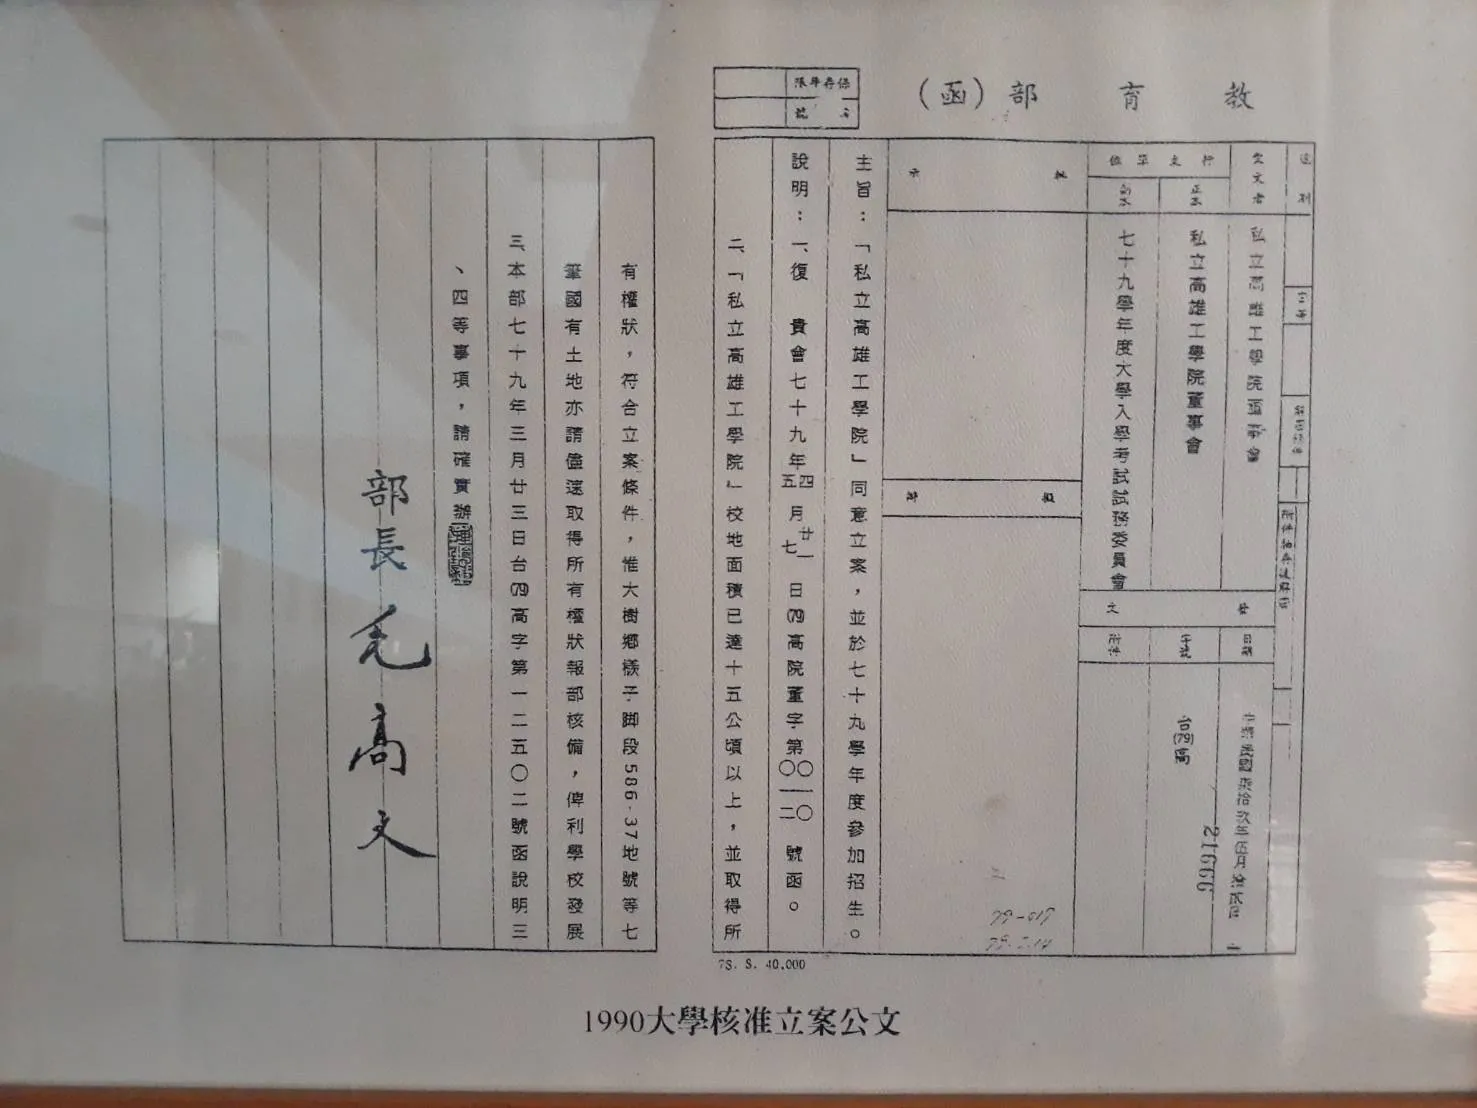 教育部（函）
保存年限
號
速別
受文者
私立高雄工學院董事會
行文單位
正本
私立高雄工學院董事會
副本
七十九學年度大學入學考試試務委員會
附件抽存後歸
發文
日期
中華民國柒拾玖年伍月
字號
台(79)高
21666
附件
批示
擬辦
79-017
主旨：「私立高雄工學院」同意立案，並於七十九學年度參加招生。
說明：一、復 貴會七十九年四五月廿一七日(79)高院董字第〇〇一〇〇二號函。
二、「私立高雄工學院」校地面積已達十五公頃以上，並取得所
有權狀，符合立案條件，惟大樹鄉檨子脚段586-37地號等七
筆國有土地亦請儘速取得所有權狀報部核備，俾利學校發展
三、本部七十九年三月廿三日台(79)高字第一二五〇二號函說明三
、四等事項，請確實辦
部長毛高文
7S. S. 40.000
1990大學核准立案公文